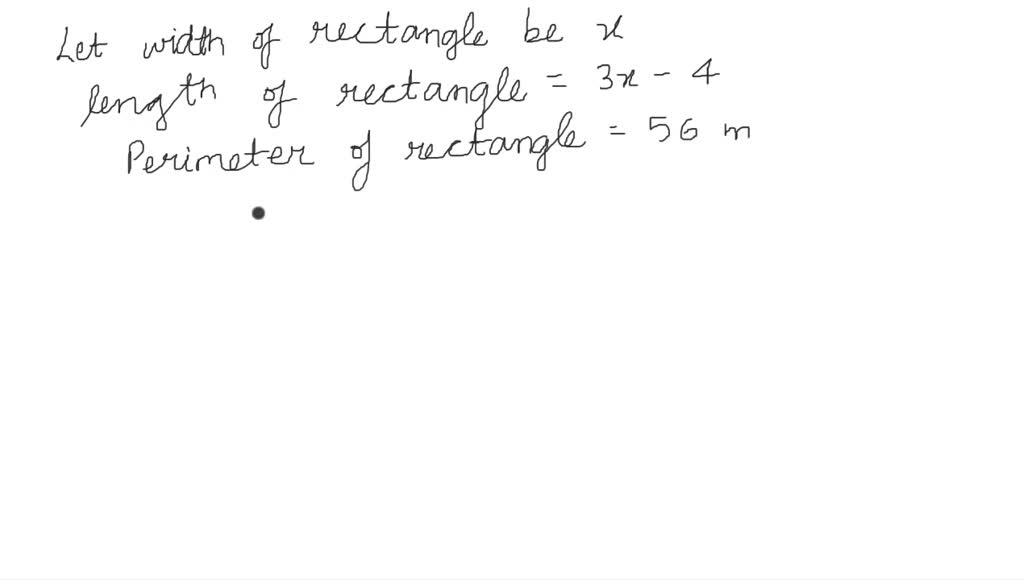 Let width of rectangle be x
length of rectangle = 3x - 4
Perimeter of rectangle = 56 m